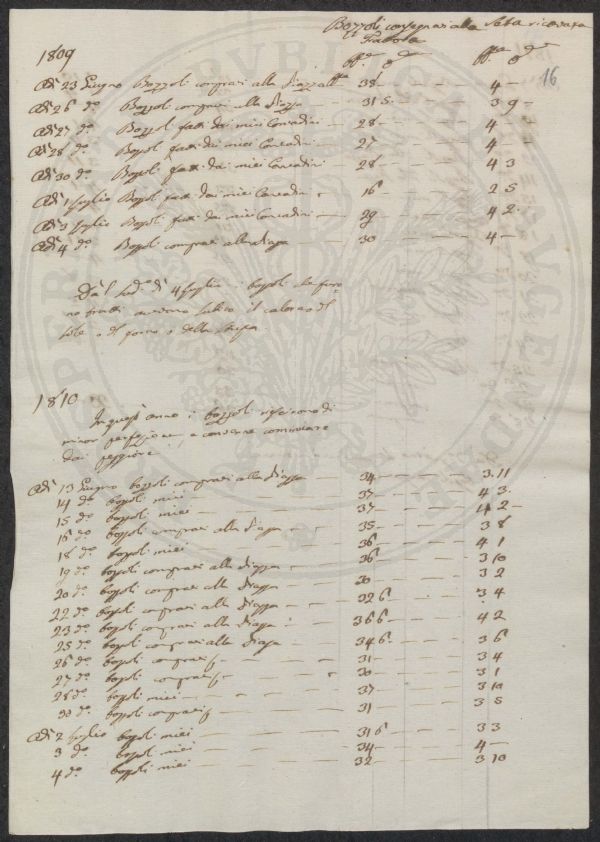 Bozzoli consegnati alla Seta ricavata
Trattola
1809 ff.e d ff.e d
16
Adì 23 Giugno Bozzoli comprati alla Piazza 38 — 4 —
Adì 26 do. Bozzoli comprati alla Piazza 31 5 3 9 —
Adì 27 do. Bozzoli fatti dai miei Contadini 28 — 4 —
Adì 28 do. Bozzoli fatti dai miei Contadini 27 — 4 —
Adì 30 do. Bozzoli fatti dai miei Contadini 28 — 4 3
Adì 1 Luglio Bozzoli fatti dai miei Contadini 16 — 2 5
Adì 3 Luglio Bozzoli fatti dai miei Contadini 29 — 4 2
Adì 4 do. Bozzoli comprati alla Piazza 30 — 4 —
Dal sud.o dì 4 Luglio i bozzoli che furo
no tratti avevano subito il calore del
sole o del forno o della stufa.
1810
In quest'anno i bozzoli riescirono di
minor perfezione, e convenne cominciare
dai peggiori
Adì 13 Giugno bozzoli comprati alla Piazza 34 — 3 11
14 do. bozzoli miei 37 — 4 3
15 do. bozzoli miei 37 — 4 2 —
16 do. bozzoli comprati alla Piazza 35 3 8
18 do. bozzoli miei 36 4 1
19 do. bozzoli comprati alla Piazza 36 3 10
20 do. bozzoli comprati alla Piazza 30 3 2
22 do. bozzoli comprati alla Piazza 32 6 3 4
23 do. bozzoli comprati alla Piazza 36 6 4 2
25 do. bozzoli comprati alla Piazza 34 6 3 6
26 do. bozzoli comprati 31 — 3 4
27 do. bozzoli comprati 30 3 1
28 do. bozzoli miei 37 3 10
30 do. bozzoli comprati 31 3 5
Adì 2 Luglio bozzoli miei 31 6 3 3
3 do. bozzoli miei 34 4 —
4 do. bozzoli miei 32 3 10